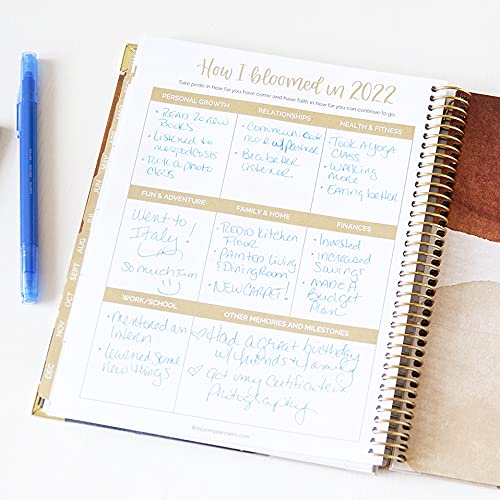 How I bloomed in 2022
Take pride in how far you have come and have faith in how far you can continue to go.
PERSONAL GROWTH
• READ 20 new
Books
• Listened to
more podcasts
• Took a photo
class
RELATIONSHIPS
• Communicate
more w/ partner
• Be a better
listener
HEALTH & FITNESS
• Took a yoga
CLASS
• WALKING
more
• Eating better
FUN & ADVENTURE
Went to
Italy!
So much fun
FAMILY & HOME
• REDID Kitchen
Floor
• PAINTED Living
& Dining Room
• NEW CARPET!
FINANCES
• Invested
• increased
Savings
• MADE A
Budget
Plan
WORK/SCHOOL
• Mentored an
Intern
• Learned some
new things
OTHER MEMORIES AND MILESTONES
Had a great birthday
w/ friends & family
Got my Certificate in
Photography
bloomplanners.com
JUL
AUG
SEPT
OCT
NOV
DEC